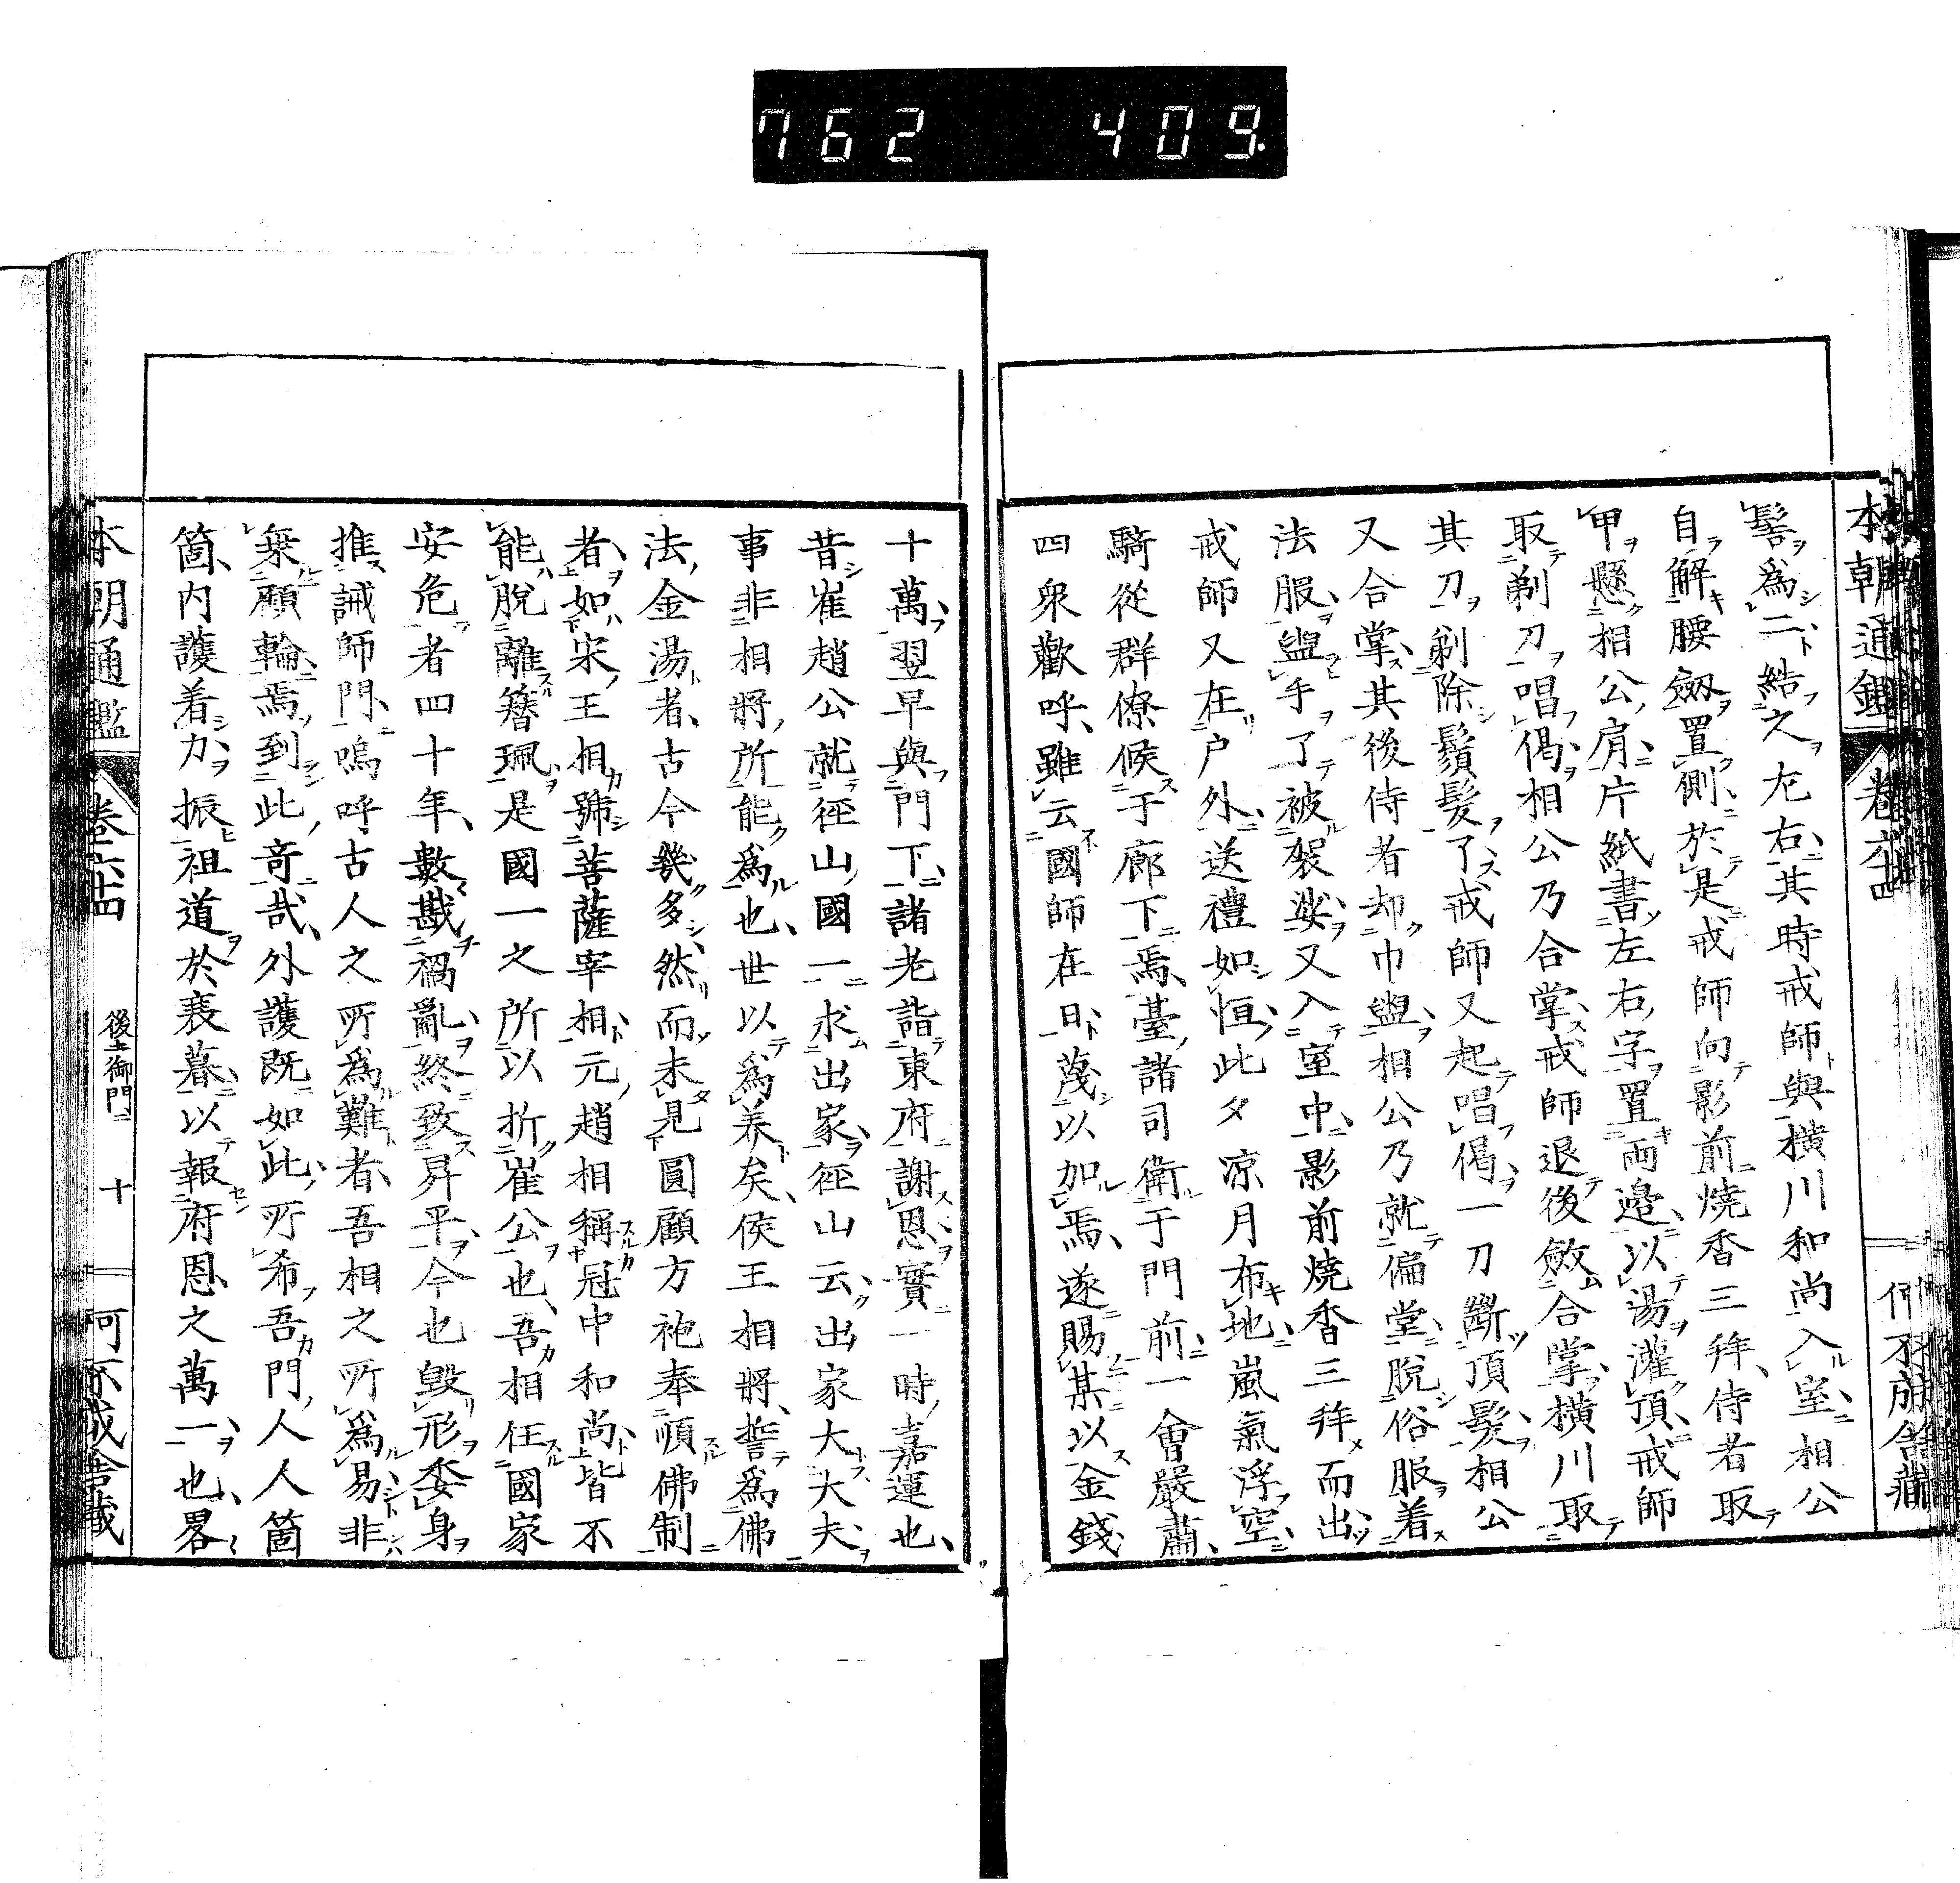 762 409
本朝通鑑 卷六十四
髻爲二結之左右其時戒師與橫川和尚入室相公
自解腰劔置側於是戒師向影前燒香三拜侍者取
甲懸相公肩片紙書左右字置両邉以湯灌頂戒師
取剃刀唱偈相公乃合掌戒師退後斂合掌橫川取
其刀剃除鬚髮了戒師又起唱偈一刀斷頂髮相公
又合掌其後侍者却巾盥相公乃就偏堂脫俗服着
法服盥手了被袈娑又入室中影前燒香三拜而出
戒師又在户外送禮如恒此夕凉月布地嵐氣浮空
騎從群僚候于廊下焉臺諸司衛于門前一會嚴肅
四衆歡呼雖云國師在日蔑以加焉遂賜某以金錢
十萬翌早與門下諸老詣東府謝恩實一時嘉運也
昔崔趙公就徑山國一求出家徑山云出家大大夫
事非相將所能爲也世以爲美矣侯王相將誓爲佛
法金湯者古今幾多然而未見圓顱方袍奉順佛制
者如宋王相號菩薩宰相元趙相稱冠中和尚皆不
能脫離簪珮是國一之所以折崔公也吾相任國家
安危者四十年數戡禍亂終致昇平今也毀形委身
推誠師門嗚呼古人之所爲難者吾相之所爲易非
乘願輪焉到此竒哉外護既如此所希吾門人人箇
箇内護着力振祖道於衰暮以報府恩之萬一也畧
本朝通鑑 卷六十四 後土御門二 十